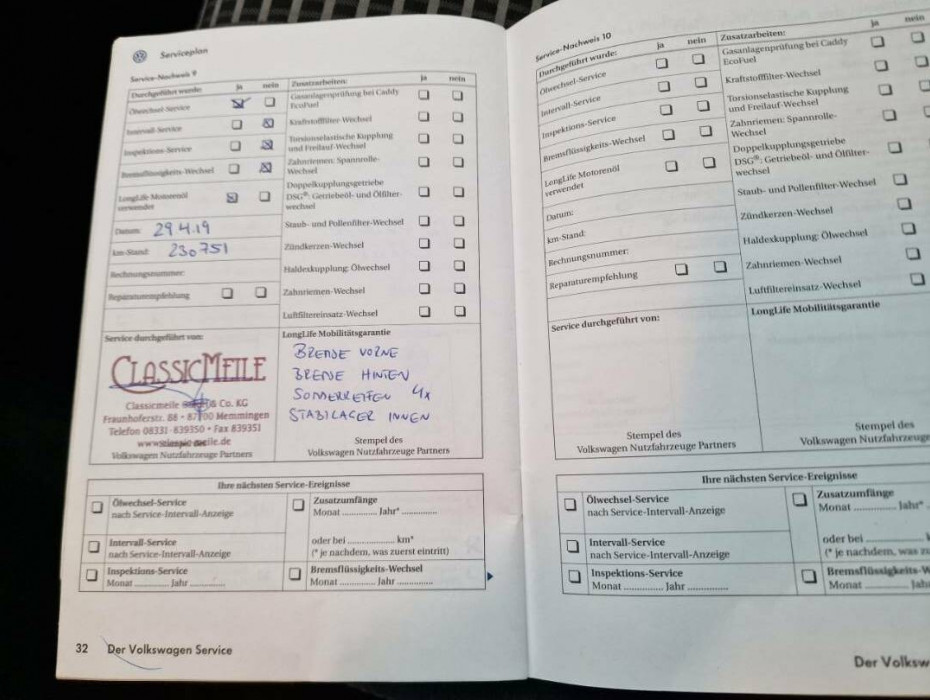 Serviceplan
Service-Nachweis 9
Durchgeführt wurde: ja nein
Ölwechsel-Service
Intervall-Service
Inspektions-Service
Bremsflüssigkeits-Wechsel
LongLife Motorenöl
verwendet
Datum: 29.4.19
km-Stand: 230751
Rechnungsnummer:
Reparaturempfehlung
Zusatzarbeiten: ja nein
Gasanlagenprüfung bei Caddy
EcoFuel
Kraftstofffilter-Wechsel
Torsionselastische Kupplung
und Freilauf-Wechsel
Zahnriemen: Spannrolle-
Wechsel
Doppelkupplungsgetriebe
DSG®: Getriebeöl- und Ölfilter-
wechsel
Staub- und Pollenfilter-Wechsel
Zündkerzen-Wechsel
Haldexkupplung: Ölwechsel
Zahnriemen-Wechsel
Luftfiltereinsatz-Wechsel
Service durchgeführt von:
CLASSICMEILE
Classicmeile & Co. KG
Fraunhoferstr. 88 • 87700 Memmingen
Telefon 08331-839350 • Fax 839351
Volkswagen Nutzfahrzeuge Partners
LongLife Mobilitätsgarantie
BREMSE VORNE
BREMSE HINTEN
SOMMERREIFEN 4x
STABILAGER INNEN
Stempel des
Volkswagen Nutzfahrzeuge Partners
Ihre nächsten Service-Ereignisse
Ölwechsel-Service
nach Service-Intervall-Anzeige
Zusatzumfänge
Monat ............. Jahr* .............
oder bei ................ km*
(* je nachdem, was zuerst eintritt)
Intervall-Service
nach Service-Intervall-Anzeige
Inspektions-Service
Monat ............ Jahr ............
Bremsflüssigkeits-Wechsel
Monat ............ Jahr ............
32 Der Volkswagen Service
Service-Nachweis 10
Durchgeführt wurde: ja nein
Ölwechsel-Service
Intervall-Service
Inspektions-Service
Bremsflüssigkeits-Wechsel
LongLife Motorenöl
verwendet
Datum:
km-Stand:
Rechnungsnummer:
Reparaturempfehlung
Zusatzarbeiten: ja nein
Gasanlagenprüfung bei Caddy
EcoFuel
Kraftstofffilter-Wechsel
Torsionselastische Kupplung
und Freilauf-Wechsel
Zahnriemen: Spannrolle-
Wechsel
Doppelkupplungsgetriebe
DSG®: Getriebeöl- und Ölfilter-
wechsel
Staub- und Pollenfilter-Wechsel
Zündkerzen-Wechsel
Haldexkupplung: Ölwechsel
Zahnriemen-Wechsel
Luftfiltereinsatz-Wechsel
Service durchgeführt von:
Stempel des
Volkswagen Nutzfahrzeuge Partners
LongLife Mobilitätsgarantie
Stempel des
Volkswagen Nutzfahrzeuge
Ihre nächsten Service-Ereignisse
Ölwechsel-Service
nach Service-Intervall-Anzeige
Zusatzumfänge
Monat ............. Jahr*
oder bei ................
(* je nachdem, was zu
Intervall-Service
nach Service-Intervall-Anzeige
Inspektions-Service
Monat ............ Jahr ............
Bremsflüssigkeits-W
Monat ............ Jahr
Der Volksw